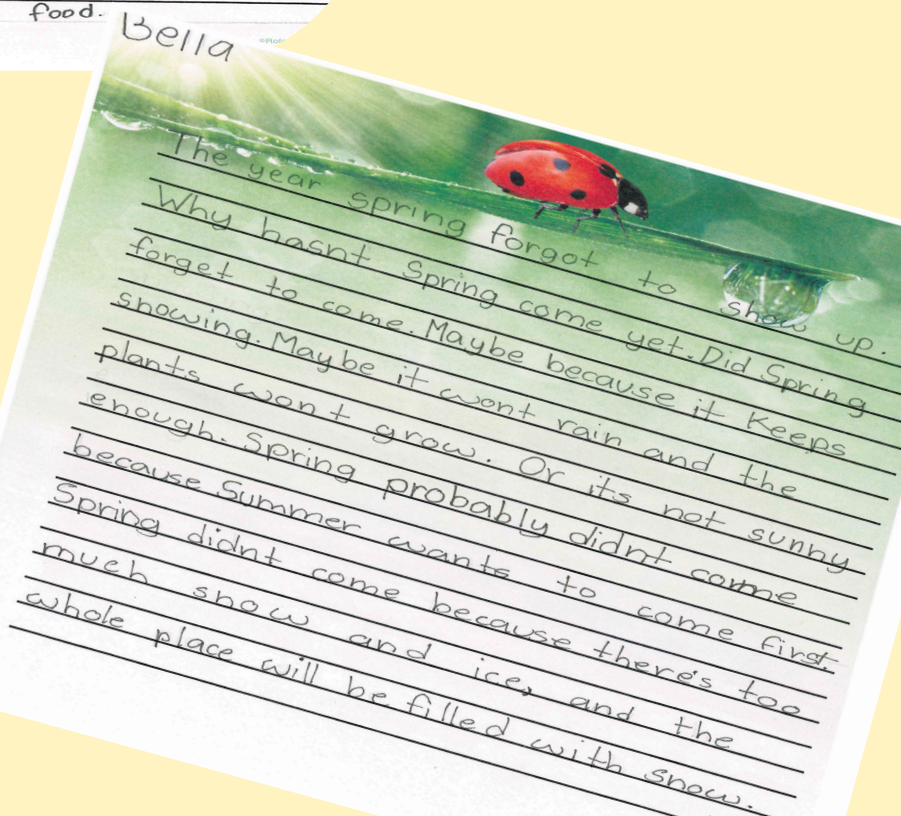 food.
Bella
The year spring forgot to show up.
Why hasnt Spring come yet. Did Spring
forget to come. Maybe because it Keeps
snowing. Maybe it wont rain and the
plants wont grow. Or its not sunny
enough. Spring probably didnt come
because Summer wants to come first.
Spring didnt come because there's too
much snow and ice, and the
whole place will be filled with snow.